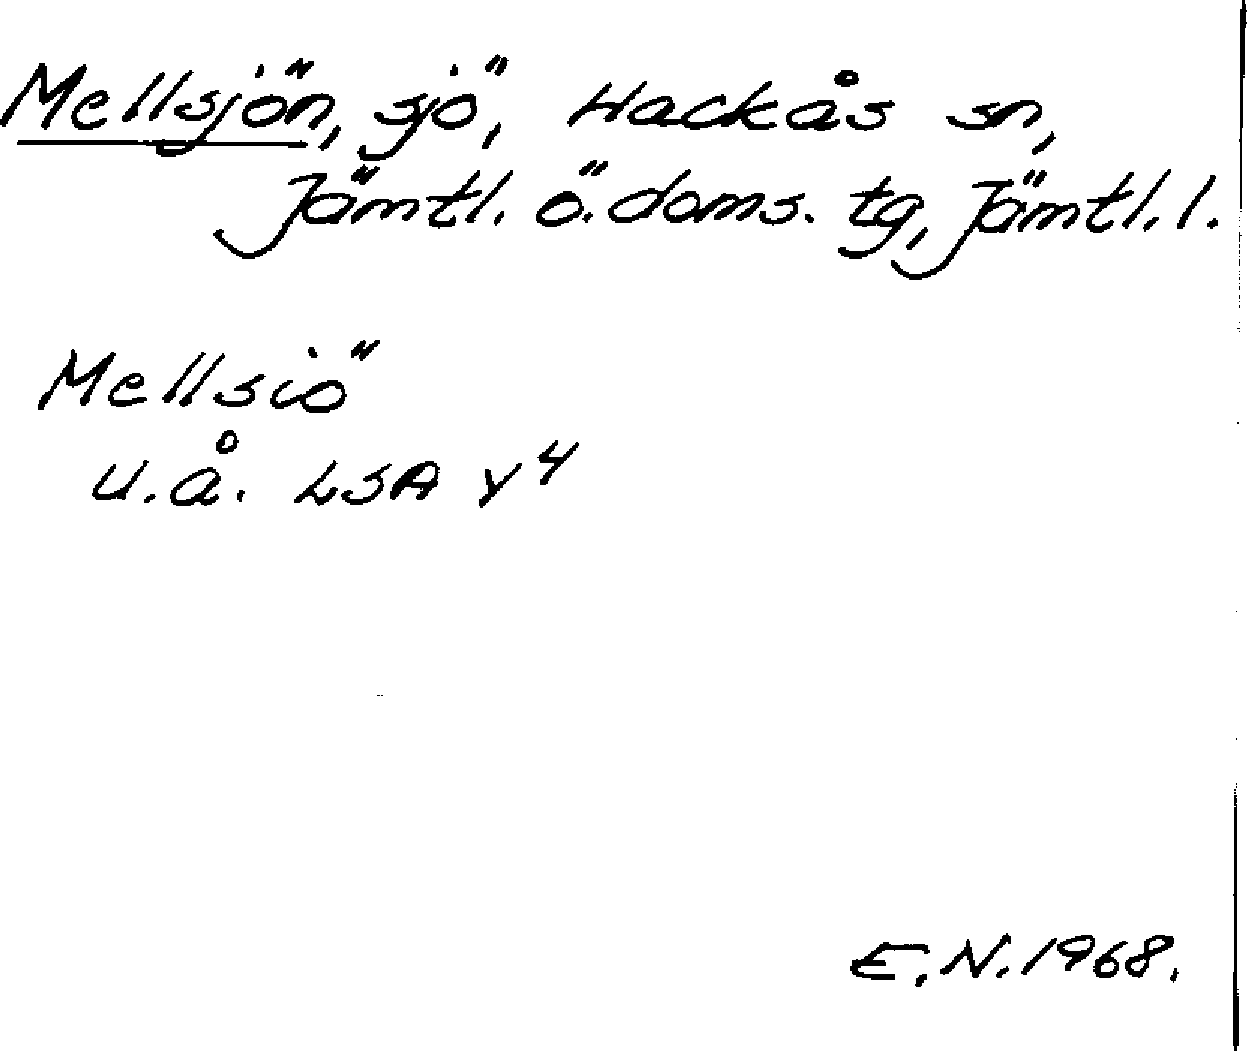 Mellsjön, sjö, Hackås sn,
Jämtl. ö. doms. tg, Jämtl. l.
Mellsiö
u.å. LSA Y4
E.N. 1968.